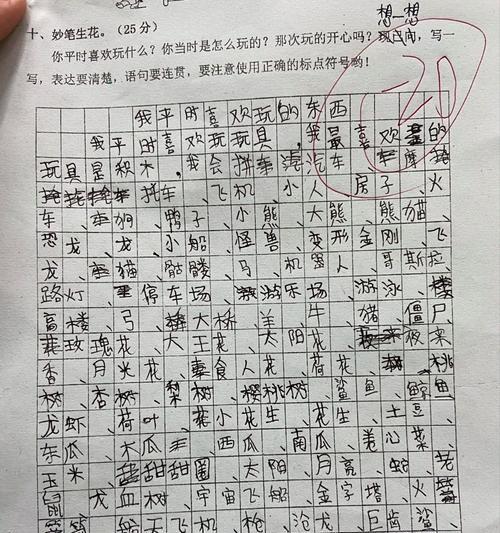 十、妙笔生花。（25分）
想一想
你平时喜欢玩什么？你当时是怎么玩的？那次玩的开心吗？现已问，写一
写，表达要清楚，语句要连贯，要注意使用正确的标点符号哟！
-20
我平时喜欢玩的东西
我平时喜欢玩玩具，我最喜欢的
玩具是积木，我会拼汽车、摩
托车、飞机、小人、房子、火
车、狗、鸭子、小熊、大熊、熊猫、
恐龙、龙、小船、怪兽、变形金刚、飞
龙、猫、骷髅、马、机器人、哥斯拉、
路灯、停车场、游乐场、游泳、
高楼、弓、大桥、羊、牛、猪、僵尸、
玫瑰花、大王花、太阳花、板来
香、月米花、食人花、荷花、桃
树、杏树、梨树、樱桃树、鲨鱼、鲸鱼、
龙虾、荷叶、小花生、花生、土豆、
东瓜、木瓜、西瓜、南瓜、美心菜、
玉米、甜甜圈、太阳、月亮、老
鼠、龙血树、宇宙飞船、金字塔、火
天飞机、枪、沧龙、巨齿鲨、